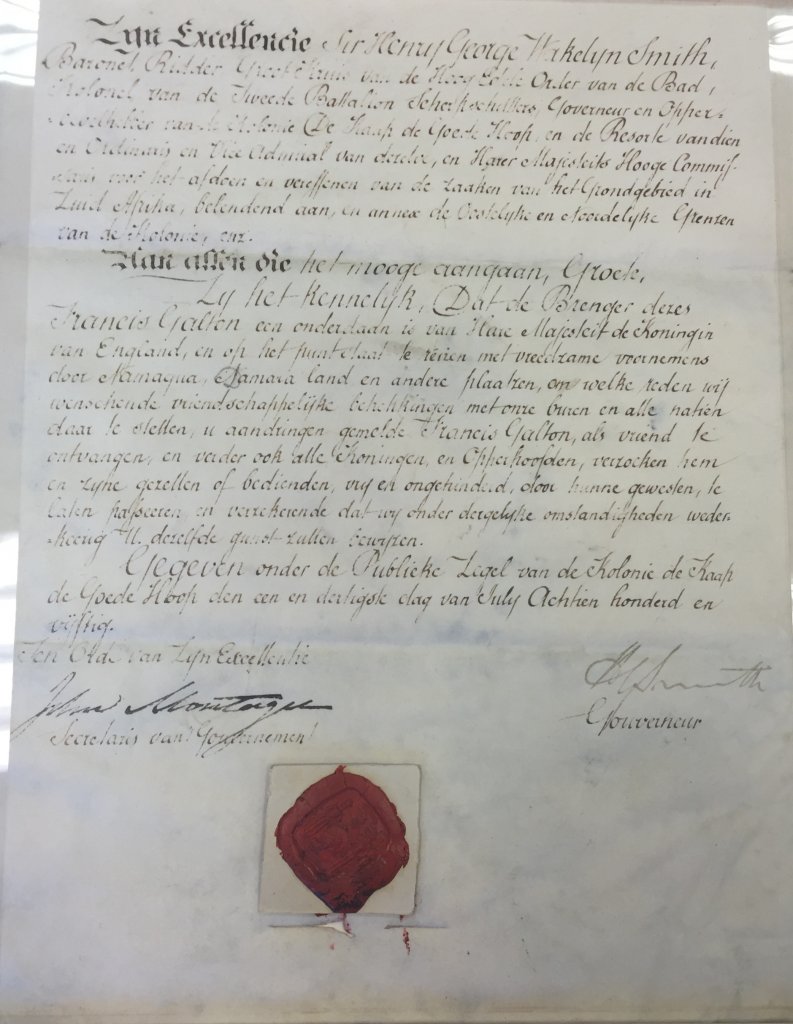 Zyn Excellencie Sir Henry George Wakelyn Smith,
Baronet, Ridder Groot Kruis van de Hoog Edele Order van de Bad,
Kolonel van de Tweede Battalion Scherpschutters, Gouverneur en Opper-
bevelhebber van de Kolonie De Kaap de Goede Hoop, en de Resorte van dien
en Ordinaris en Vice Admiraal van dezelve, en Harer Majesteits Hooge Commis-
saris voor het afdoen en vereffenen van de zaaken van het Grondgebied in
Zuid Afrika, belendend aan, en annex de Oostelyke en Noordelyke Grenzen
van de Kolonie, enz.
Aan allen die het mooge aangaan, Groete,
Zy het kennelyk, Dat de Brenger dezes
Francis Galton een onderdaan is van Hare Majesteit de Koningin
van England, en op het punt staat te reizen met vreedzame voornemens
door Namaqua, Damara land en andere plaatzen, om welke reden wij
wenschende vriendschappelijke betrekkingen met onze buren en alle natiën
daar te stellen, u aandringen gemelde Francis Galton, als vriend te
ontvangen, en verder ook alle Koningen, en Opperhoofden, verzoeken hem
en zyne gezellen of bedienden, vry en ongehinderd, door hunne gewesten, te
laten passeeren, en verzekerende dat wij onder dergelyke omstandigheden weder-
keerig U dezelfde gunst zullen bewijzen.
Gegeven onder de Publieke Zegel van de Kolonie de Kaap
de Goede Hoop den een en dertigste dag van July Achtien honderd en
vijftig.
Ten Orde van Zyn Excellentie
John Montagu
Secretaris van't Gouvernement
HG Smith
Gouverneur